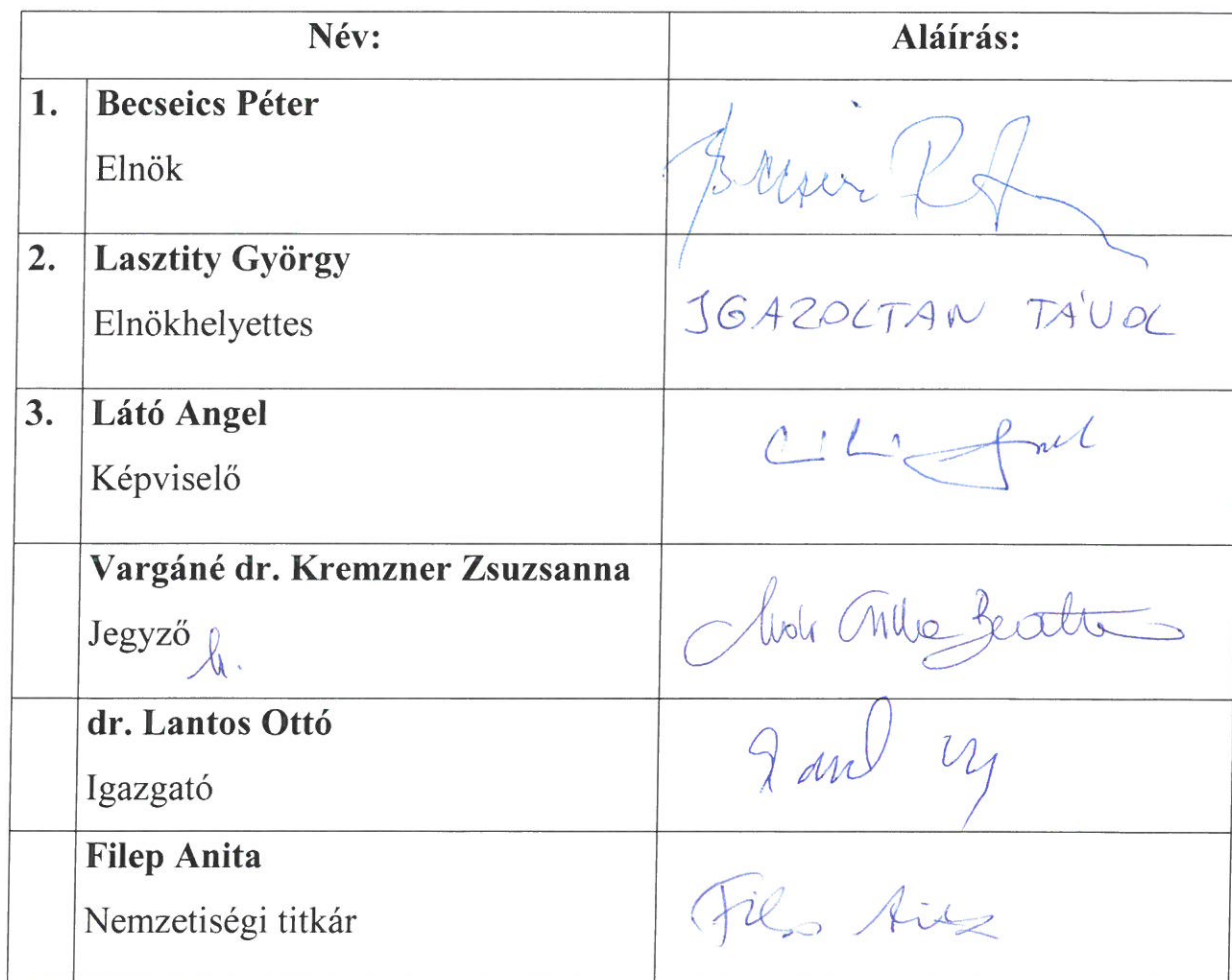 Név: Aláírás:
1. Becseics Péter
Elnök
2. Lasztity György
Elnökhelyettes
IGAZOLTAN TÁVOL
3. Látó Angel
Képviselő
Vargáné dr. Kremzner Zsuzsanna
Jegyző h.
dr. Lantos Ottó
Igazgató
Filep Anita
Nemzetiségi titkár